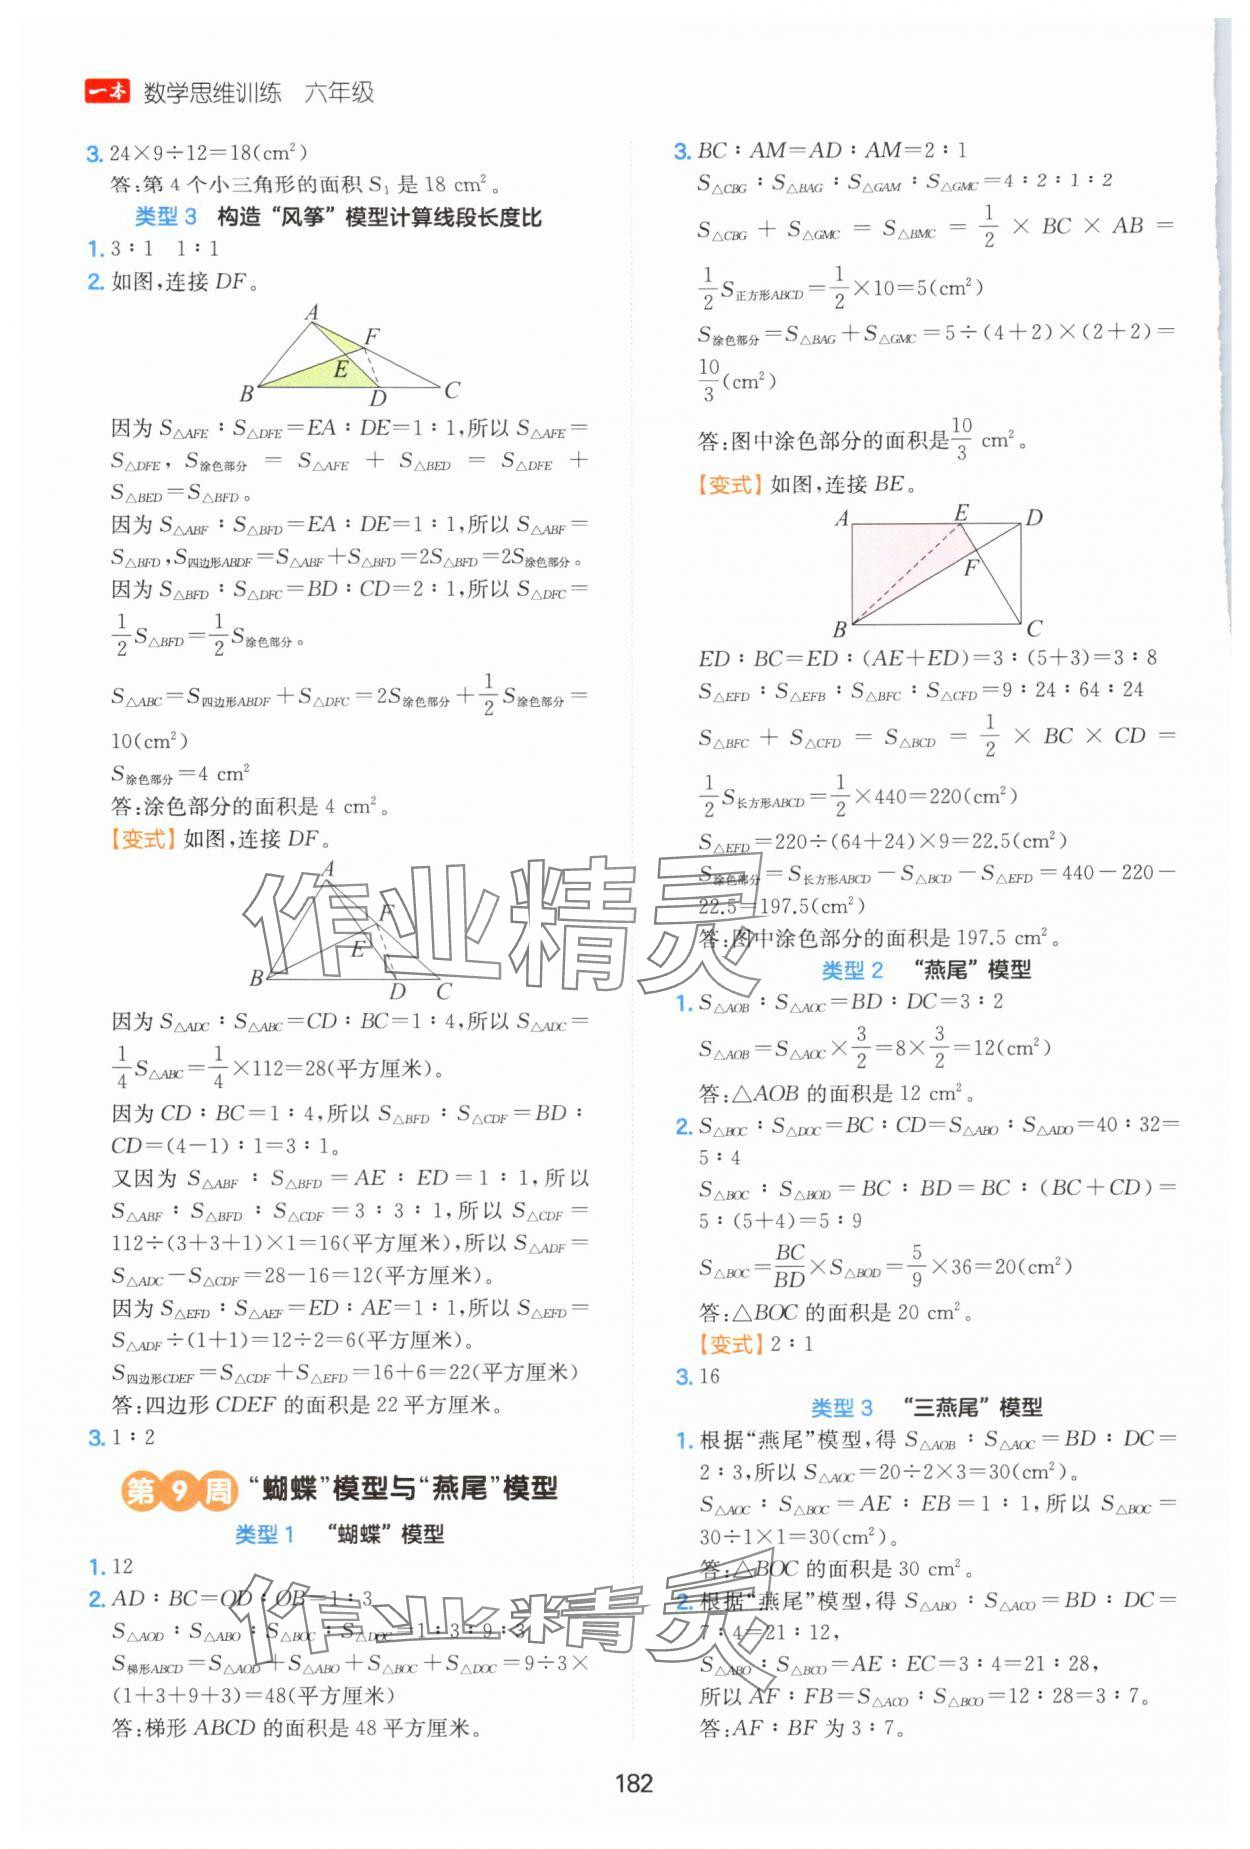 一本 数学思维训练 六年级
3. 24×9÷12=18(cm²)
答:第 4 个小三角形的面积 S₁ 是 18 cm²。
类型 3 构造“风筝”模型计算线段长度比
1. 3∶1 1∶1
2. 如图,连接 DF。
A
F
E
B D C
因为 S△AFE∶S△DFE=EA∶DE=1∶1,所以 S△AFE=
S△DFE, S涂色部分 = S△AFE + S△BED = S△DFE +
S△BED=S△BFD。
因为 S△ABF∶S△BFD=EA∶DE=1∶1,所以 S△ABF=
S△BFD,S四边形ABDF=S△ABF+S△BFD=2S△BFD=2S涂色部分。
因为 S△BFD∶S△DFC=BD∶CD=2∶1,所以 S△DFC=
1/2 S△BFD=1/2 S涂色部分。
S△ABC=S四边形ABDF+S△DFC=2S涂色部分+1/2 S涂色部分=
10(cm²)
S涂色部分=4 cm²
答:涂色部分的面积是 4 cm²。
【变式】如图,连接 DF。
A
F
E
B D C
因为 S△ADC∶S△ABC=CD∶BC=1∶4,所以 S△ADC=
1/4 S△ABC=1/4×112=28(平方厘米)。
因为 CD∶BC=1∶4,所以 S△BFD∶S△CDF=BD∶
CD=(4-1)∶1=3∶1。
又因为 S△ABF∶S△BFD=AE∶ED=1∶1,所以
S△ABF∶S△BFD∶S△CDF=3∶3∶1,所以 S△CDF=
112÷(3+3+1)×1=16(平方厘米),所以 S△ADF=
S△ADC-S△CDF=28-16=12(平方厘米)。
因为 S△EFD∶S△AEF=ED∶AE=1∶1,所以 S△EFD=
S△ADF÷(1+1)=12÷2=6(平方厘米)
S四边形CDEF=S△CDF+S△EFD=16+6=22(平方厘米)
答:四边形 CDEF 的面积是 22 平方厘米。
3. 1∶2
第 9 周 “蝴蝶”模型与“燕尾”模型
类型 1 “蝴蝶”模型
1. 12
2. AD∶BC=OD∶OB=1∶3
S△AOD∶S△ABO∶S△BOC∶S△DOC=1∶3∶9∶3
S梯形ABCD=S△AOD+S△ABO+S△BOC+S△DOC=9÷3×
(1+3+9+3)=48(平方厘米)
答:梯形 ABCD 的面积是 48 平方厘米。
3. BC∶AM=AD∶AM=2∶1
S△CBG∶S△BAG∶S△GAM∶S△GMC=4∶2∶1∶2
S△CBG + S△GMC = S△BMC = 1/2 × BC × AB =
1/2 S正方形ABCD=1/2×10=5(cm²)
S涂色部分=S△BAG+S△GMC=5÷(4+2)×(2+2)=
10/3(cm²)
答:图中涂色部分的面积是10/3 cm²。
【变式】如图,连接 BE。
A E D
F
B C
ED∶BC=ED∶(AE+ED)=3∶(5+3)=3∶8
S△EFD∶S△EFB∶S△BFC∶S△CFD=9∶24∶64∶24
S△BFC + S△CFD = S△BCD = 1/2 × BC × CD =
1/2 S长方形ABCD=1/2×440=220(cm²)
S△EFD=220÷(64+24)×9=22.5(cm²)
S涂色部分=S长方形ABCD-S△BCD-S△EFD=440-220-
22.5=197.5(cm²)
答:图中涂色部分的面积是 197.5 cm²。
类型 2 “燕尾”模型
1. S△AOB∶S△AOC=BD∶DC=3∶2
S△AOB=S△AOC×3/2=8×3/2=12(cm²)
答:△AOB 的面积是 12 cm²。
2. S△BOC∶S△DOC=BC∶CD=S△ABO∶S△ADO=40∶32=
5∶4
S△BOC∶S△BOD=BC∶BD=BC∶(BC+CD)=
5∶(5+4)=5∶9
S△BOC=BC/BD×S△BOD=5/9×36=20(cm²)
答:△BOC 的面积是 20 cm²。
【变式】2∶1
3. 16
类型 3 “三燕尾”模型
1. 根据“燕尾”模型,得 S△AOB∶S△AOC=BD∶DC=
2∶3,所以 S△AOC=20÷2×3=30(cm²)
S△AOC∶S△BOC=AE∶EB=1∶1,所以 S△BOC=
30÷1×1=30(cm²)
答:△BOC 的面积是 30 cm²。
2. 根据“燕尾”模型,得 S△ABO∶S△ACO=BD∶DC=
7∶4=21∶12,
S△ABO∶S△BCO=AE∶EC=3∶4=21∶28,
所以 AF∶FB=S△ACO∶S△BCO=12∶28=3∶7。
答:AF∶BF 为 3∶7。
182
作业精灵
作业精灵